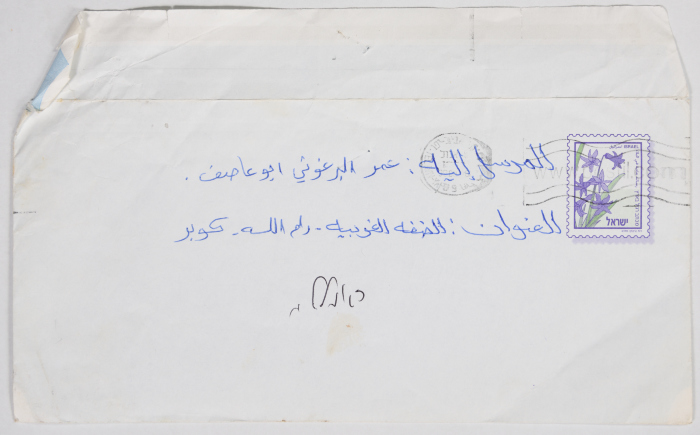 المرسل إليه : عمر البرغوثي ابو عاصف .
العنوان : الضفه الغربيه - رام الله - كوبر
ישראל